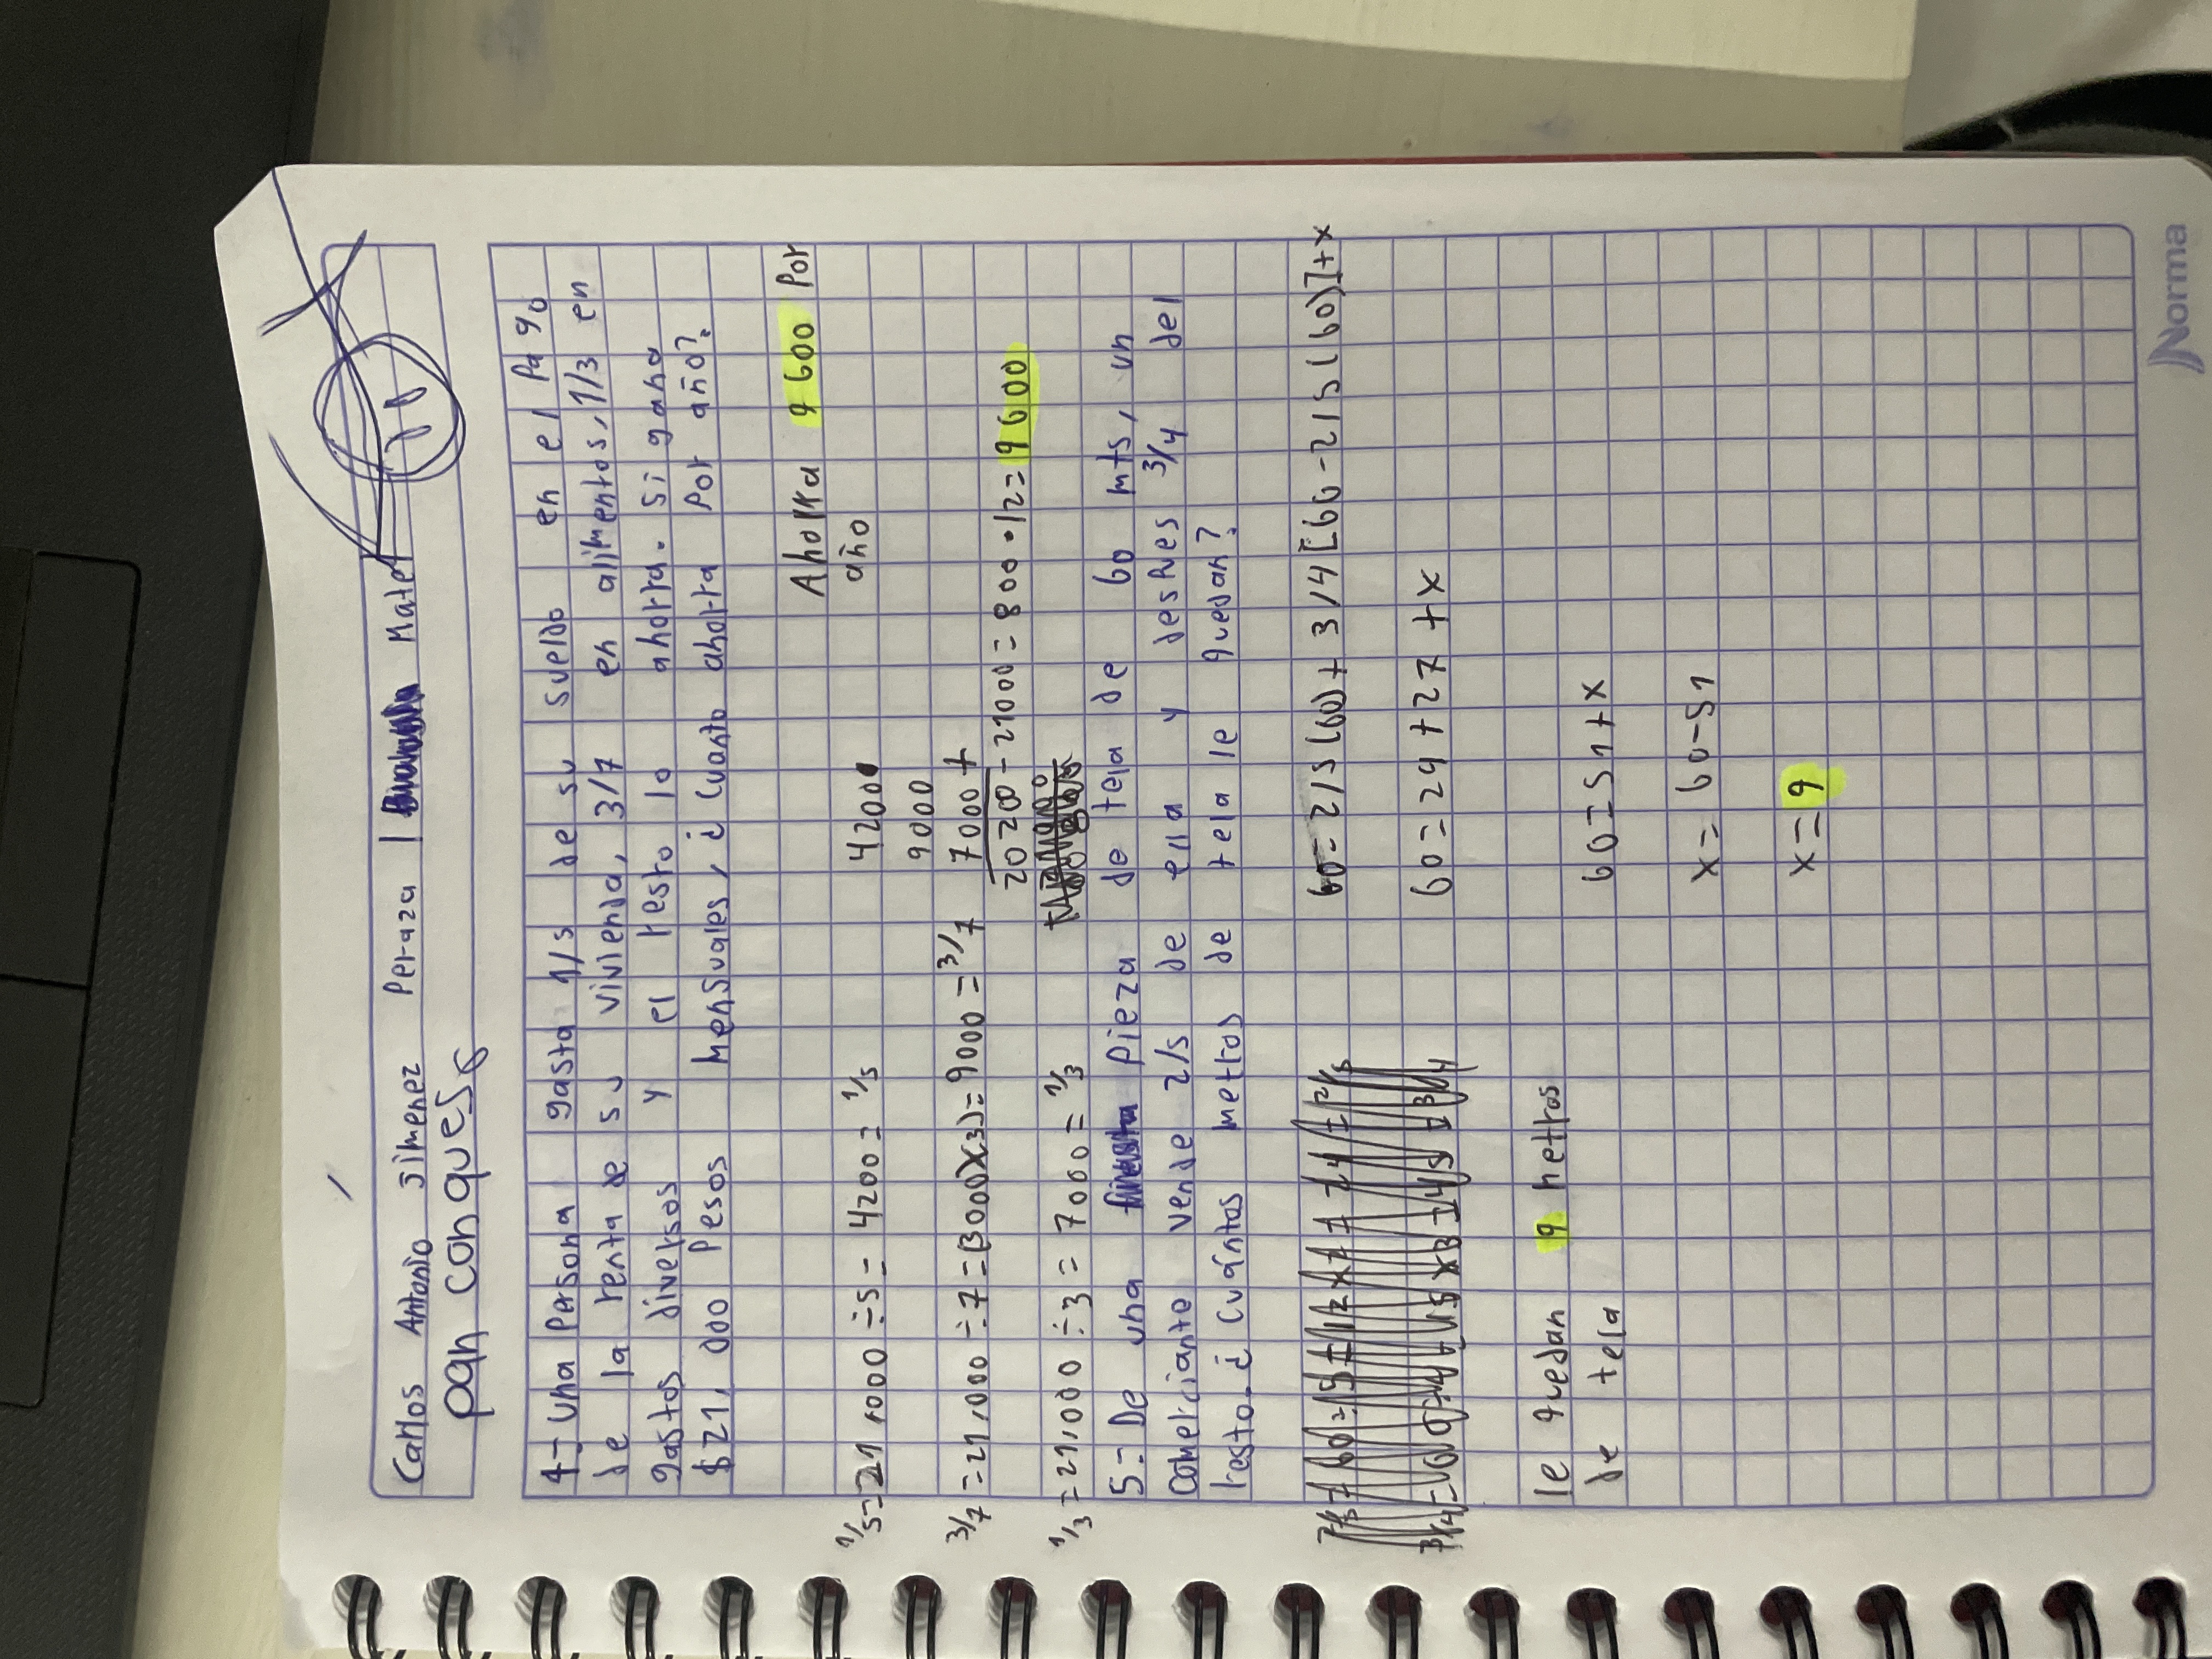 Carlos Antonio Jimenez Peraza 1 Mate
pan conques
4- Una Persona gasta 1/5 de su sueldo en el Pago
de la renta de su vivienda, 3/7 en alimentos, 1/3 en
gastos diversos y el resto lo ahorra. Si gana
$21,000 Pesos mensuales, ¿ Cuanto ahorra Por año?
Ahorra 9 600 Por
año
1/5=21,000 ÷5= 4200= 1/5 4200
9000
3/7 =21,000 ÷7=(3000)(x3)=9000=3/7 7000 +
20 200 - 21000= 800 • 12= 9600
1/3 =21,000 ÷3= 7000= 1/3
5-De una pieza de tela de 60 mts, un
comerciante vende 2/5 de ella y despues 3/4 del
resto. ¿ Cuántos metros de tela le quedan?
60=2/5(60)+ 3/4[60-2/5(60)]+x
60=24+27+x
le quedan 9 metros
de tela
60=51+x
x=60-51
x=9
Norma